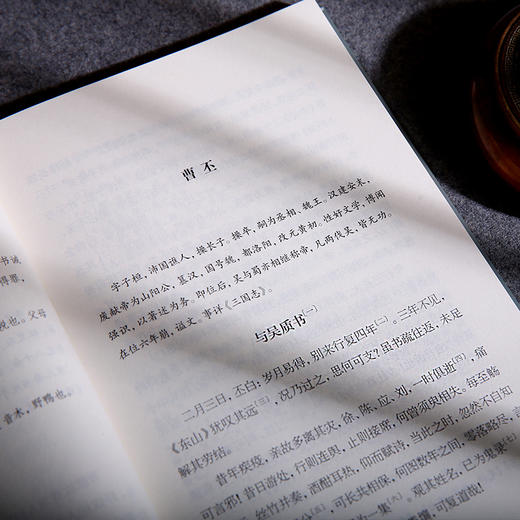 曹丕
字子桓，沛国谯人，操长子。操卒，嗣为丞相、魏王。汉建安末，
废献帝为山阳公，篡汉，国号魏，都洛阳，改元黄初。性好文学，博闻
强识，以著述为务。即位后，吴与蜀亦相继称帝，凡两伐吴，皆无功。
在位六年崩，谥文。事详《三国志》。
与吴质书〔一〕
二月三日，丕白：岁月易得，别来行复四年〔二〕。三年不见，
《东山》犹叹其远〔三〕，况乃过之，思何可支？虽书疏往返，未足
解其劳结。
昔年疾疫，亲故多离其灾，徐、陈、应、刘，一时俱逝〔四〕，痛
可言邪！昔日游处，行则连舆，止则接席，何曾须臾相失。每至觞
丝竹并奏，酒酣耳热，仰而赋诗，当此之时，忽然不自知
可长共相保，何图数年之间，零落略尽，
一集〔六〕。观其姓名，已为鬼录〔七〕
可复道哉！
书诫
得罪，
说也。父母
音木，野鸭也。